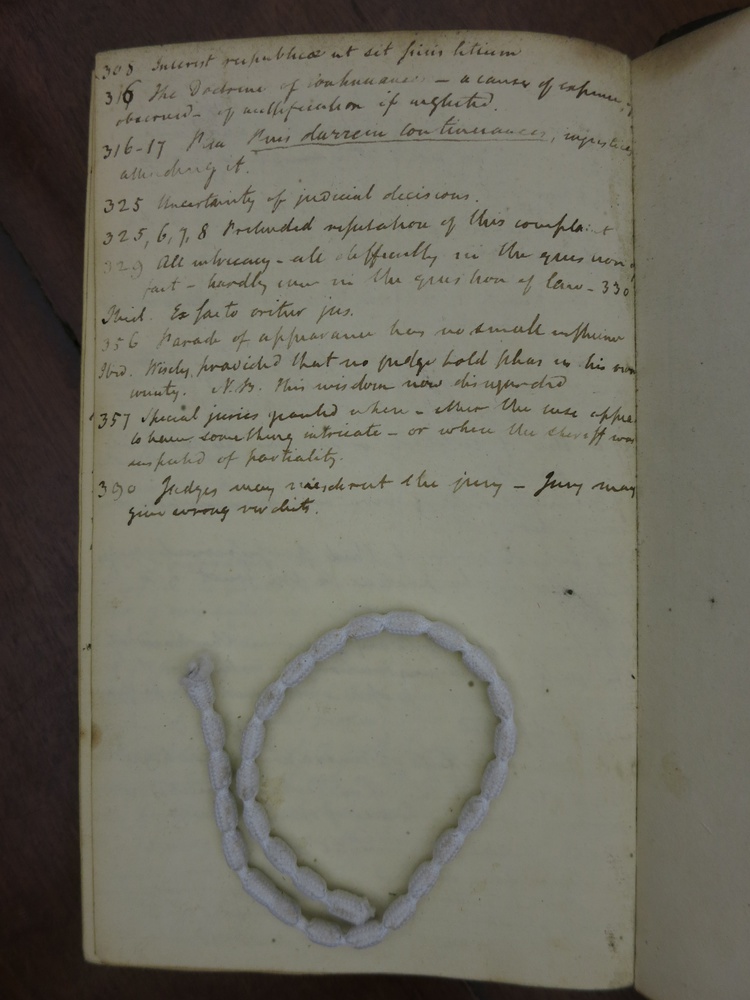 308 Interest reipublicæ ut sit finis litium
316 The Doctrine of continuances — a cause of expense, if
observed — of nullification if neglected.
316-17 Plea Puis darrein continuances, injustice
attending it.
325 Uncertainty of judicial decisions.
325, 6, 7, 8 Pretended refutation of this complaint
329 All intricacy — all difficulty in the question of
fact — hardly ever in the question of law — 330
Ibid. Ex facto oritur jus.
356 Parade of appearance has no small influence
Ibid. Wisely provided that no judge hold pleas in his own
county. N.B. This wisdom now disregarded
357 Special juries granted when — either the case appears
to have something intricate — or where the sheriff was
suspected of partiality.
390 Judges may misdirect the jury — Jury may
give wrong verdicts.